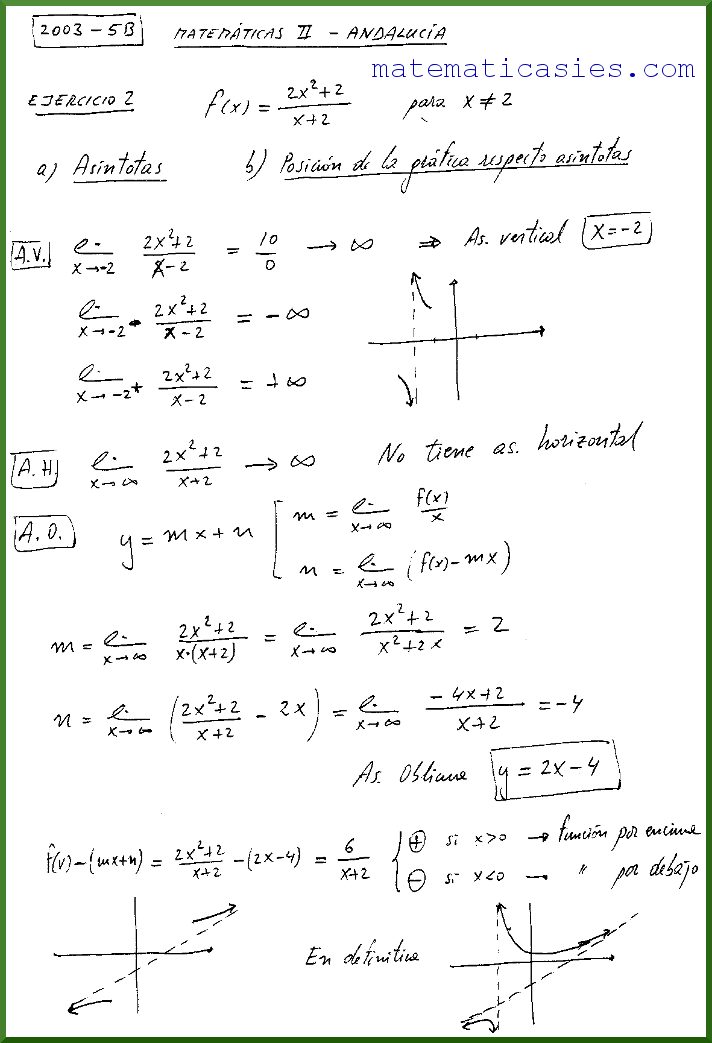 2003-5B MATEMÁTICAS II - ANDALUCÍA
matematicasies.com
EJERCICIO 2 f(x) = (2x²+2)/(x+2) para x ≠ 2
a) Asíntotas b) Posición de la gráfica respecto asíntotas
A.V. l. x→-2 (2x²+2)/(x-2) = 10/0 → ∞ ⇒ As. vertical x=-2
l. x→-2⁻ (2x²+2)/(x-2) = -∞
l. x→-2⁺ (2x²+2)/(x-2) = +∞
A.H. l. x→∞ (2x²+2)/(x+2) → ∞ No tiene as. horizontal
A.O. y = mx+n [ m = l. x→∞ f(x)/x
n = l. x→∞ (f(x)-mx)
m = l. x→∞ (2x²+2)/(x·(x+2)) = l. x→∞ (2x²+2)/(x²+2x) = 2
n = l. x→∞ ((2x²+2)/(x+2) - 2x) = l. x→∞ (-4x+2)/(x+2) = -4
As. Oblicua y = 2x-4
f(x)-(mx+n) = (2x²+2)/(x+2) -(2x-4) = 6/(x+2) { ⊕ si x>0 → función por encima
⊖ si x<0 → " por debajo
En definitiva